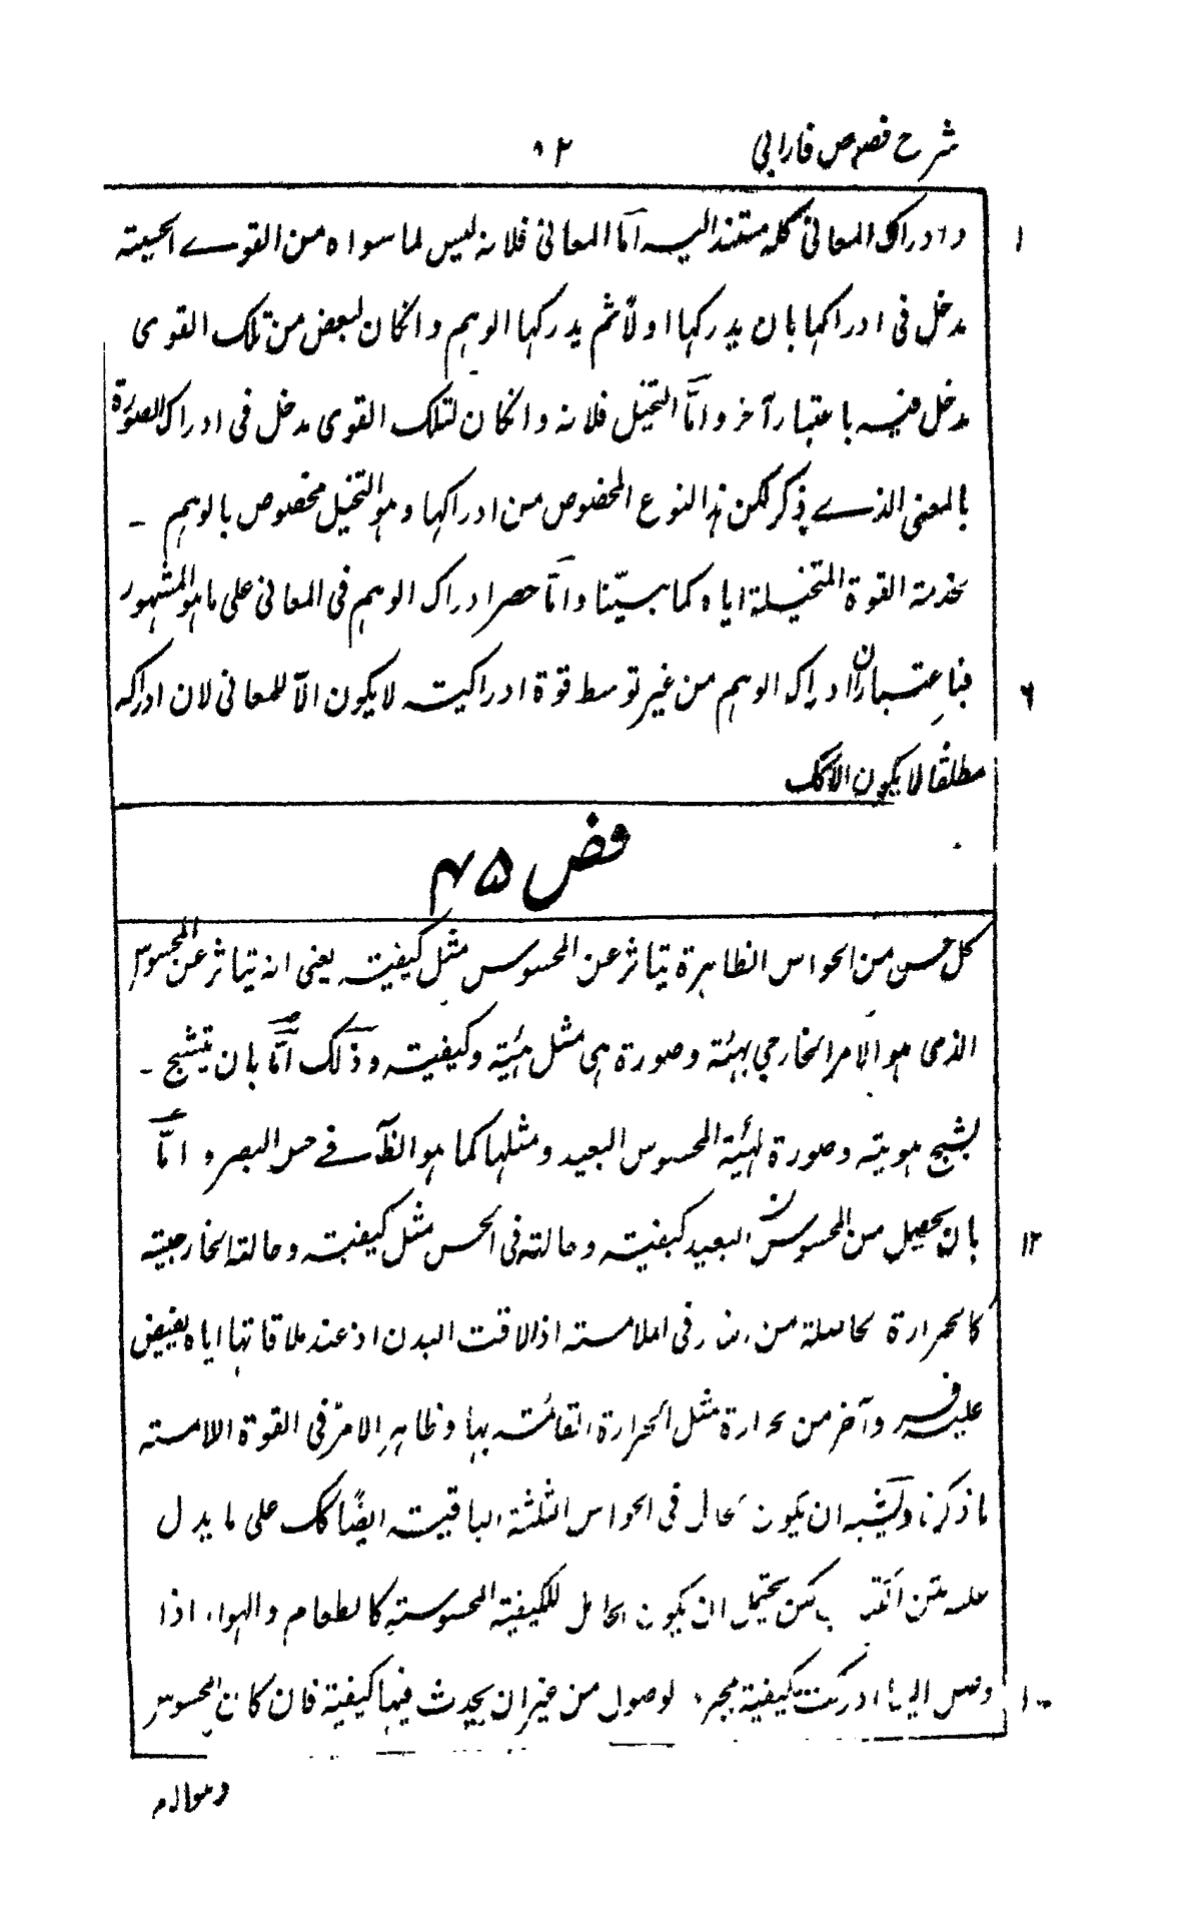 شرح فصوص فارابی ۸۲
۱ وادراک المعانی کله مستند الیه اما المعانی فلانه لیس لما سواه من القوے الحسیته
مدخل فی ادراکها بان یدرکها اولاً ثم یدرکها الوہم وانکان لبعض من تلک القوی
مدخل فیه باعتبار آخر وامّا التخیل فلانه وانکان لتلک القوی مدخل فی ادراک الصورة
بالمعنی الذے ذکر لکن ہذا النوع المخصوص من ادراکہا وہو التخیل مخصوص بالوہم ۔
بخدمة القوة المتخیلة ایاه کما بیّنا وامّا حصر ادراک الوہم فی المعانی علی ماہو المشہور
۶ فباعتبار ان ادراک الوہم من غیر توسط قوة ادراکیته لایکون الّا للمعانی لان ادراکه
مطلقًا لا یکون الا کک
فص ۴۵
کل حس من الحواس الظاہرة یتاثر عن المحسوس مثل کیفیته یعنی انه یتاثر عن المحسوس
الذی ہو الامر الخارجی بہیئة وصورة ہی مثل ہیئته وکیفیته وذلک امّا بان یتشبح ۔
بشبح ہویته وصورة لهیئة المحسوس البعید ومثلہا کما ہو الظاَ فے حس البصر و امّا
۱۲ بان یحصل من المحسوس البعید کیفیته وحالته فی الحس مثل کیفیته وحالته الخارجیته
کالحرارة الحاصلة من النار فی الملامسته اذا لاقت البدن اذ عند ملاقاتہا ایاه یفیض
علیه فرد آخر من حرارة مثل الحرارة القائمته بہا وظاہر الامر فی القوة اللامسته
ما ذکرنا ویشبه ان یکون الحال فی الحواس الثلثة الباقیته ایضًا کک علی ما یدل
علیه متن لکن یحتمل ان یکون الحامل للکیفیة المحسوسته کالطعام والہواء اذا
وصل الیہا ادرکت کیفیة بمجرد لوصول من غیر ان یحدث فیہا کیفیة فان کان المحسوس